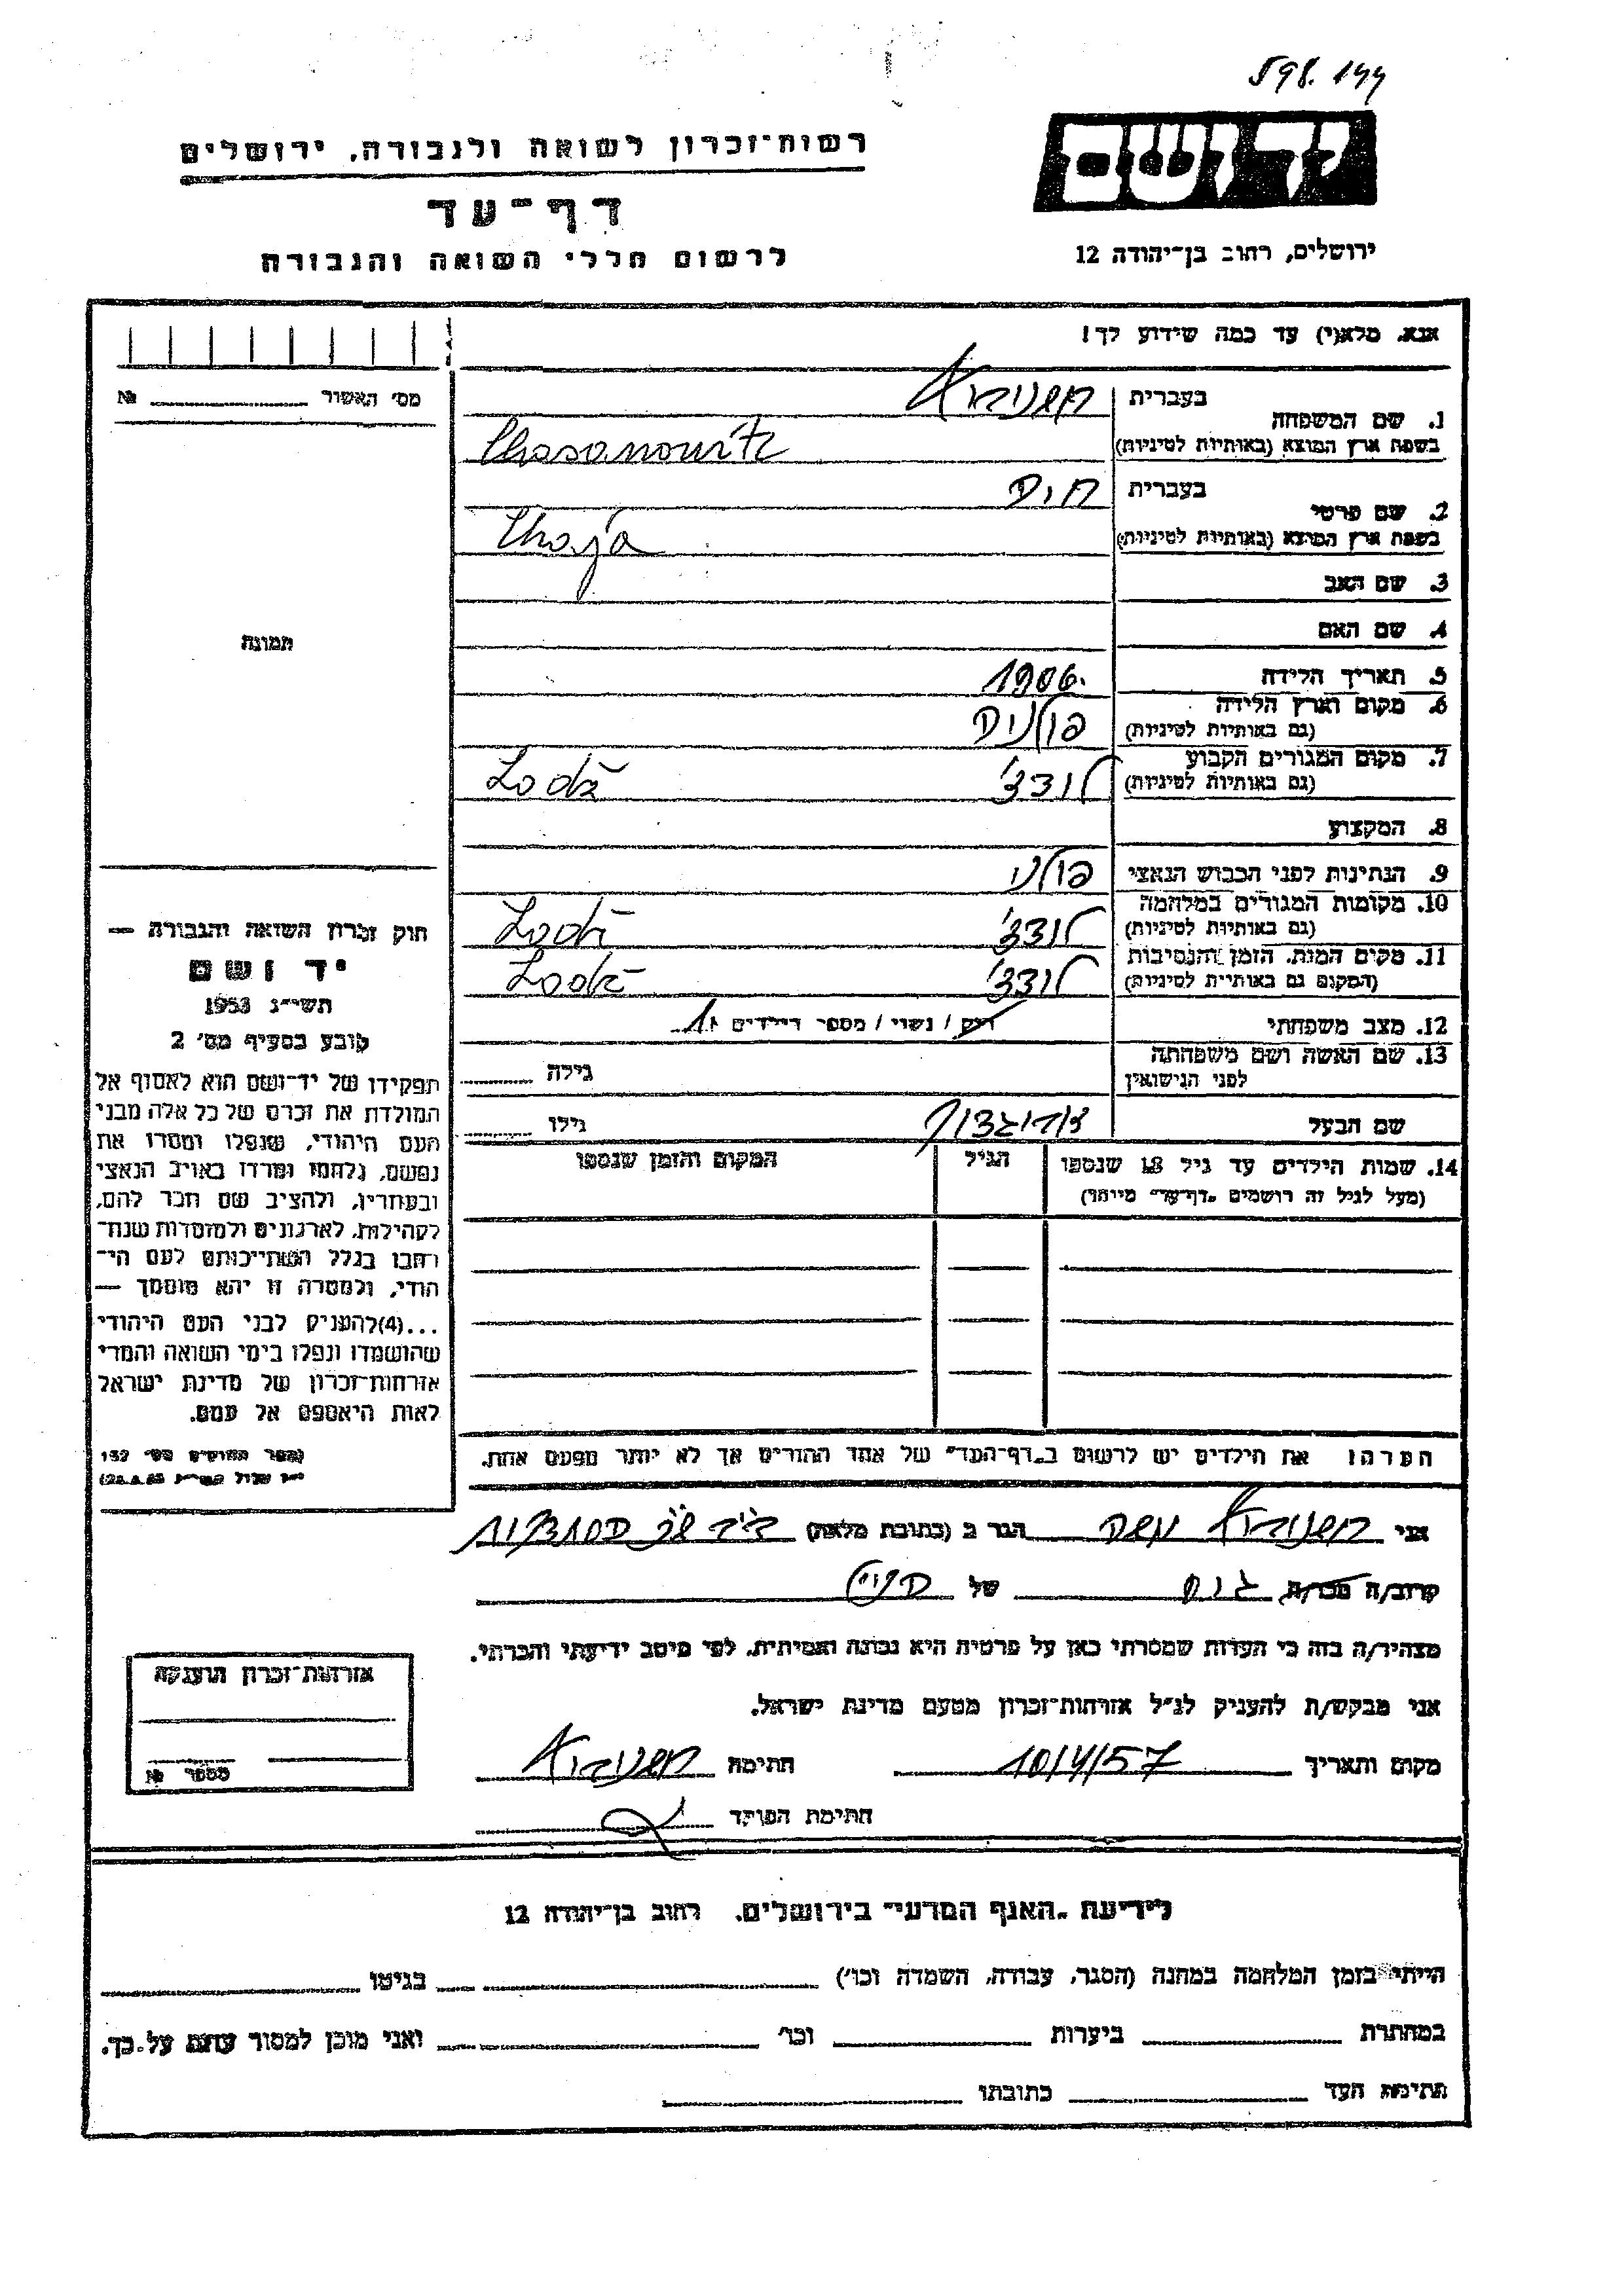 598.144
יד ושם
רשות־זכרון לשואה ולגבורה, ירושלים
דף־עד
לרשום חללי השואה והגבורה
ירושלים, רחוב בן־יהודה 12
אנא, מלא(י) עד כמה שידוע לך!
מס' האשור №
תמונה
1. שם המשפחה
בעברית
בשפת ארץ המוצא (באותיות לטיניות) Chasanowitz
2. שם פרטי
בעברית חיה
בשפת ארץ המוצא (באותיות לטיניות) Chaja
3. שם האב
4. שם האם
5. תאריך הלידה 1906.
6. מקום וארץ הלידה
(גם באותיות לטיניות) פולניה
7. מקום המגורים הקבוע
(גם באותיות לטיניות) לודז' Lodż
8. המקצוע
9. הנתינות לפני הכבוש הנאצי פולני
10. מקומות המגורים במלחמה
(גם באותיות לטיניות) לודז' Lodż
11. מקום המות, הזמן והנסיבות
(המקום גם באותיות לטיניות) לודז' Lodż
12. מצב משפחתי רוק / נשוי / מספר הילדים 1
13. שם האשה ושם משפחתה
לפני הנישואין גילה
שם הבעל גילו
14. שמות הילדים עד גיל 18 שנספו
(מעל לגיל זה רושמים "דף־עד" מיוחד)
הגיל
המקום והזמן שנספו
הערה: את הילדים יש לרשום ב"דף־העד" של אחד ההורים אך לא יותר מפעם אחת.
חוק זכרון השואה והגבורה —
יד ושם
תשי"ג 1953
קובע בסעיף מס' 2
תפקידו של יד־ושם הוא לאסוף אל
המולדת את זכרם של כל אלה מבני
העם היהודי, שנפלו ומסרו את
נפשם, נלחמו ומרדו באויב הנאצי
ובעוזריו, ולהציב שם וזכר להם,
לקהילות, לארגונים ולמוסדות שנח־
רבו בגלל השתייכותם לעם הי־
הודי, ולמטרה זו יהא מוסמך —
...(4) להעניק לבני העם היהודי
שהושמדו ונפלו בימי השואה והמרי
אזרחות־זכרון של מדינת ישראל
לאות היאספם אל עמם.
אני משה הגר ב (כתובת מלאה)
קרוב/ה מכר/ה של
מצהיר/ה בזה כי העדות שמסרתי כאן על פרטיה היא נכונה ואמיתית, לפי מיטב ידיעתי והכרתי.
אני מבקש/ת להעניק לנ"ל אזרחות־זכרון מטעם מדינת ישראל.
מקום ותאריך 10/4/57 חתימה
חתימת הפוקד
אזרחות־זכרון הוענקה
מספר №
לידיעת "האגף המדעי" בירושלים, רחוב בן־יהודה 12
הייתי בזמן המלחמה במחנה (הסגר, עבודה, השמדה וכו') בגיטו
במחתרת ביערות וכו' ואני מוכן למסור עדות על־כך.
חתימת העד כתובתו